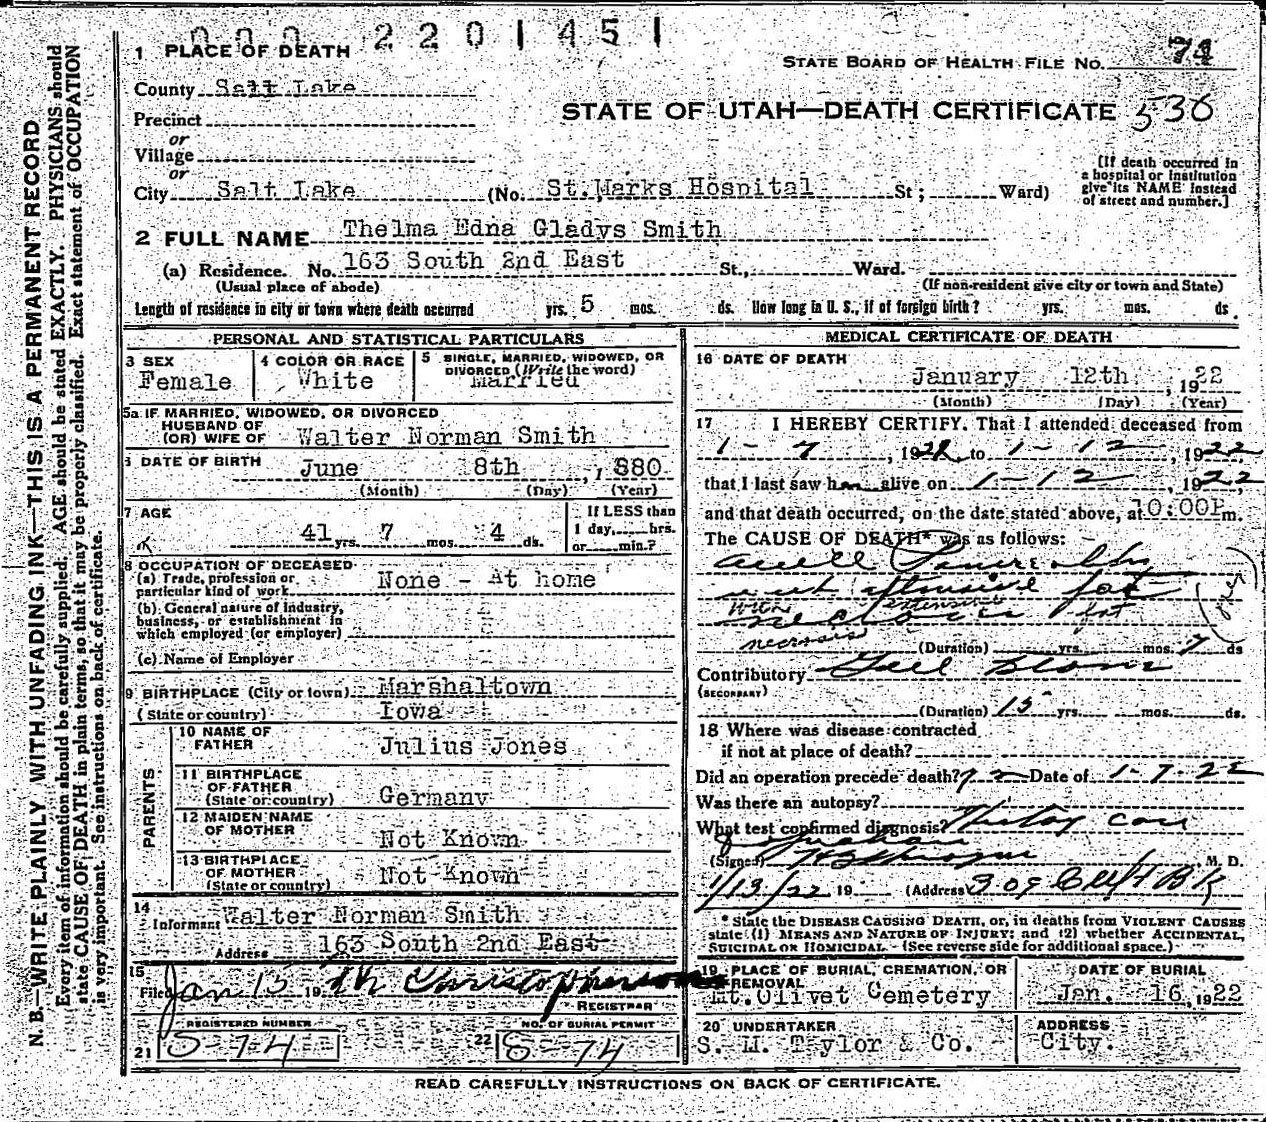 000 220145
1 PLACE OF DEATH
STATE BOARD OF HEALTH FILE NO. 74
County Salt Lake
STATE OF UTAH—DEATH CERTIFICATE 536
Precinct
or
Village
or
City Salt Lake (No. St. Marks Hospital St; Ward)
[If death occurred in
a hospital or institution
give its NAME instead
of street and number.]
2 FULL NAME Thelma Edna Gladys Smith
(a) Residence. No. 163 South 2nd East St., Ward.
(Usual place of abode) (If non-resident give city or town and State)
Length of residence in city or town where death occurred yrs. 5 mos. ds. How long in U. S., if of foreign birth? yrs. mos. ds.
PERSONAL AND STATISTICAL PARTICULARS
3 SEX Female
4 COLOR OR RACE White
5 SINGLE, MARRIED, WIDOWED, OR
DIVORCED (Write the word)
Married
5a IF MARRIED, WIDOWED, OR DIVORCED
HUSBAND OF
(OR) WIFE OF Walter Norman Smith
6 DATE OF BIRTH June 8th, 1880
(Month) (Day) (Year)
7 AGE
41 yrs. 7 mos. 4 ds.
If LESS than
1 day, hrs.
or min.?
8 OCCUPATION OF DECEASED
(a) Trade, profession or
particular kind of work None - At home
(b) General nature of industry,
business, or establishment in
which employed (or employer)
(c) Name of Employer
9 BIRTHPLACE (City or town) Marshaltown
(State or country) Iowa
PARENTS
10 NAME OF
FATHER Julius Jones
11 BIRTHPLACE
OF FATHER
(State or country) Germany
12 MAIDEN NAME
OF MOTHER Not Known
13 BIRTHPLACE
OF MOTHER
(State or country) Not Known
14
Informant Walter Norman Smith
Address 163 South 2nd East
15
Filed Jan 15 19 Christopherson
REGISTRAR
REGISTERED NUMBER
21 S-74
NO. OF BURIAL PERMIT
22 S-74
MEDICAL CERTIFICATE OF DEATH
16 DATE OF DEATH
January 12th, 1922
(Month) (Day) (Year)
17 I HEREBY CERTIFY, That I attended deceased from
1-7, 1922, to 1-12, 1922
that I last saw her alive on 1-12, 1922,
and that death occurred, on the date stated above, at 10:00P m.
The CAUSE OF DEATH* was as follows:
fat
with extensive fat
necrosis
(Duration) yrs. mos. 7 ds
Contributory Gall Stones
(SECONDARY)
(Duration) 15 yrs. mos. ds.
18 Where was disease contracted
if not at place of death?
Did an operation precede death? yes Date of 1-7-22
Was there an autopsy?
What test confirmed diagnosis?
(Signed) M. D.
1/13/22 19 (Address
* State the DISEASE CAUSING DEATH, or, in deaths from VIOLENT CAUSES
state (1) MEANS AND NATURE OF INJURY; and (2) whether ACCIDENTAL,
SUICIDAL OR HOMICIDAL - (See reverse side for additional space.)
19 PLACE OF BURIAL, CREMATION, OR
REMOVAL
Mt. Olivet Cemetery
DATE OF BURIAL
Jan. 16, 1922
20 UNDERTAKER
S. M. Taylor & Co.
ADDRESS
City.
READ CAREFULLY INSTRUCTIONS ON BACK OF CERTIFICATE.
N.B.—WRITE PLAINLY WITH UNFADING INK—THIS IS A PERMANENT RECORD
Every item of information should be carefully supplied. AGE should be stated EXACTLY. PHYSICIANS should
state CAUSE OF DEATH in plain terms, so that it may be properly classified. Exact statement of OCCUPATION
is very important. See instructions on back of certificate.